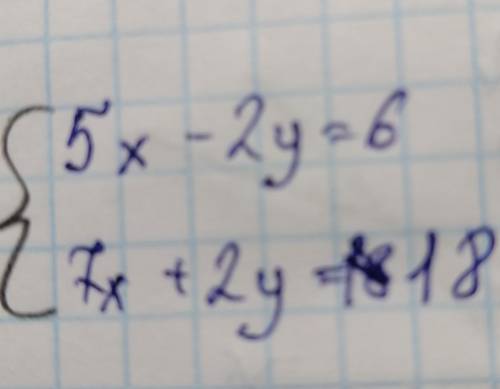 5x - 2y = 6
7x + 2y = 18